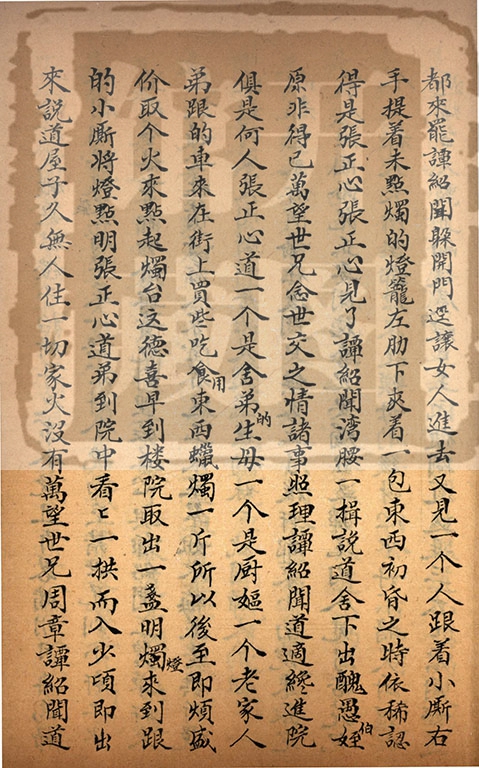 都來罷譚紹聞躲開門逕讓女人進去又見一个人跟着小廝右
手提着未點燭的燈籠左肋下夾着一包東西初昏之時依稀認
得是張正心張正心見了譚紹聞湾腰一揖說道舍下出醜愚伯姪
原非得已萬望世兄念世交之情諸事照理譚紹聞道適纔進院
俱是何人張正心道一个是舍弟的生母一个是厨嫗一个老家人
弟跟的車來在街上買些吃食用東西蠟燭一斤所以後至即煩盛
价取个火來點起燭台这德喜早到楼院取出一盞明燭燈來到跟
的小廝將燈點明張正心道弟到院中看〻一拱而入少頃即出
來說道屋子久無人住一切家火没有萬望世兄周章譚紹聞道